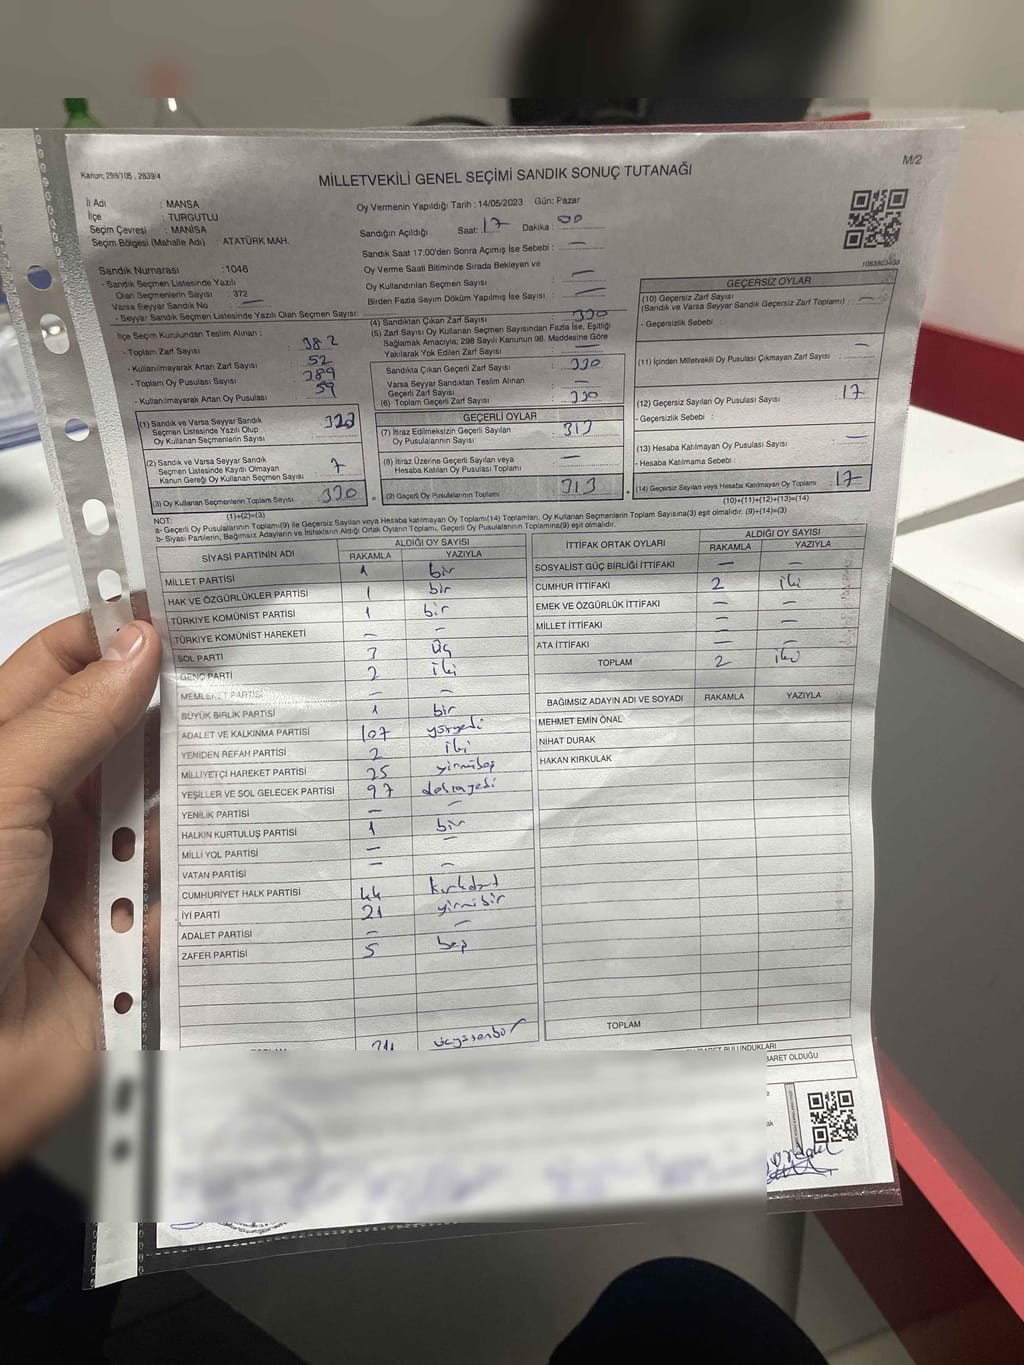 Kanun; 298/105 , 2839/4
M/2
MİLLETVEKİLİ GENEL SEÇİMİ SANDIK SONUÇ TUTANAĞI
İl Adı : MANSA
İlçe : TURGUTLU
Seçim Çevresi : MANİSA
Seçim Bölgesi (Mahalle Adı) ATATÜRK MAH.
Sandık Numarası :1046
- Sandık Seçmen Listesinde Yazılı
Olan Seçmenlerin Sayısı : 372
Varsa Seyyar Sandık No : —
- Seyyar Sandık Seçmen Listesinde Yazılı Olan Seçmen Sayısı:
Oy Vermenin Yapıldığı Tarih : 14/05/2023 Gün: Pazar
Sandığın Açıldığı Saat: 17 Dakika : 00
Sandık Saat 17.00'den Sonra Açımış İse Sebebi : —
Oy Verme Saati Bitiminde Sırada Bekleyen ve
Oy Kullandırılan Seçmen Sayısı : —
Birden Fazla Sayım Döküm Yapılmış İse Sayısı : —
İlçe Seçim Kurulundan Teslim Alınan :
- Toplam Zarf Sayısı : 382
- Kullanılmayarak Artan Zarf Sayısı : 52
- Toplam Oy Pusulası Sayısı : 389
- Kullanılmayarak Artan Oy Pusulası : 59
(1) Sandık ve Varsa Seyyar Sandık
Seçmen Listesinde Yazılı Olup
Oy Kullanan Seçmenlerin Sayısı : 323
(2) Sandık ve Varsa Seyyar Sandık
Seçmen Listesinde Kayıtlı Olmayan
Kanun Gereği Oy Kullanan Seçmen Sayısı : 7
(3) Oy Kullanan Seçmenlerin Toplam Sayısı : 330
(1)+(2)=(3)
(4) Sandıktan Çıkan Zarf Sayısı : 330
(5) Zarf Sayısı Oy Kullanan Seçmen Sayısından Fazla İse, Eşitliği
Sağlamak Amacıyla; 298 Sayılı Kanunun 98. Maddesine Göre
Yakılarak Yok Edilen Zarf Sayısı : —
Sandıkta Çıkan Geçerli Zarf Sayısı : 330
Varsa Seyyar Sandıktan Teslim Alınan
Geçerli Zarf Sayısı : —
(6) Toplam Geçerli Zarf Sayısı : 330
GEÇERLİ OYLAR
(7) İtiraz Edilmeksizin Geçerli Sayılan
Oy Pusulalarının Sayısı : 313
(8) İtiraz Üzerine Geçerli Sayılan veya
Hesaba Katılan Oy Pusulası Toplamı : —
= (9) Geçerli Oy Pusulalarının Toplamı : 313 +
1083803403
GEÇERSİZ OYLAR
(10) Geçersiz Zarf Sayısı
(Sandık ve Varsa Seyyar Sandık Geçersiz Zarf Toplamı) : —
- Geçersizlik Sebebi :
(11) İçinden Milletvekili Oy Pusulası Çıkmayan Zarf Sayısı : —
(12) Geçersiz Sayılan Oy Pusulası Sayısı : 17
- Geçersizlik Sebebi :
(13) Hesaba Katılmayan Oy Pusulası Sayısı : —
- Hesaba Katılmama Sebebi :
(14) Geçersiz Sayılan veya Hesaba Katılmayan Oy Toplamı : 17
(10)+(11)+(12)+(13)=(14)
NOT:
a- Geçerli Oy Pusulalarının Toplamı(9) ile Geçersiz Sayılan veya Hesaba katılmayan Oy Toplamı(14) Toplamları, Oy Kullanan Seçmenlerin Toplam Sayısına(3) eşit olmalıdır. (9)+(14)=(3)
b- Siyasi Partilerin, Bağımsız Adayların ve İttifakların Aldığı Ortak Oyların Toplamı, Geçerli Oy Pusulalarının Toplamına(9) eşit olmalıdır.
SİYASİ PARTİNİN ADI ALDIĞI OY SAYISI
RAKAMLA YAZIYLA
MİLLET PARTİSİ 1 bir
HAK VE ÖZGÜRLÜKLER PARTİSİ 1 bir
TÜRKİYE KOMÜNİST PARTİSİ 1 bir
TÜRKİYE KOMÜNİST HAREKETİ — —
SOL PARTİ 3 üç
GENÇ PARTİ 2 iki
MEMLEKET PARTİSİ — —
BÜYÜK BİRLİK PARTİSİ 1 bir
ADALET VE KALKINMA PARTİSİ 107 yüzyedi
YENİDEN REFAH PARTİSİ 2 iki
MİLLİYETÇİ HAREKET PARTİSİ 25 yirmibeş
YEŞİLLER VE SOL GELECEK PARTİSİ 97 doksanyedi
YENİLİK PARTİSİ — —
HALKIN KURTULUŞ PARTİSİ 1 bir
MİLLİ YOL PARTİSİ — —
VATAN PARTİSİ — —
CUMHURİYET HALK PARTİSİ 44 kırkdört
İYİ PARTİ 21 yirmibir
ADALET PARTİSİ — —
ZAFER PARTİSİ 5 beş
311 üçyüzonbir
İTTİFAK ORTAK OYLARI ALDIĞI OY SAYISI
RAKAMLA YAZIYLA
SOSYALİST GÜÇ BİRLİĞİ İTTİFAKI — —
CUMHUR İTTİFAKI 2 iki
EMEK VE ÖZGÜRLÜK İTTİFAKI — —
MİLLET İTTİFAKI — —
ATA İTTİFAKI — —
TOPLAM 2 iki
BAĞIMSIZ ADAYIN ADI VE SOYADI RAKAMLA YAZIYLA
MEHMET EMİN ÖNAL
NİHAT DURAK
HAKAN KIRKULAK
TOPLAM
BULUNDUKLARI
BARET OLDUĞU